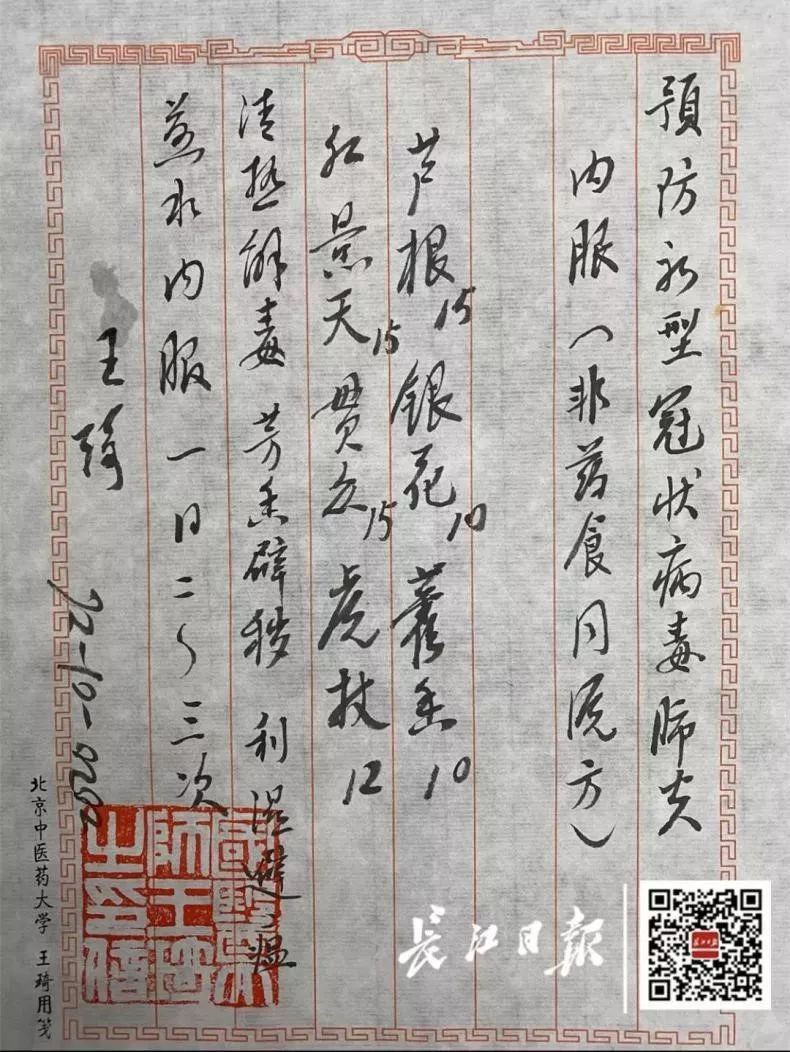 預防新型冠状病毒肺炎
内服（非药食同源方）
芦根15 银花10 藿香10
红景天15 贯众15 虎杖12
清热解毒 芳香辟秽 利湿避瘟
煎水内服 一日二～三次
王琦
國醫大師王琦之印信
北京中医药大学 王琦用笺
長江日報